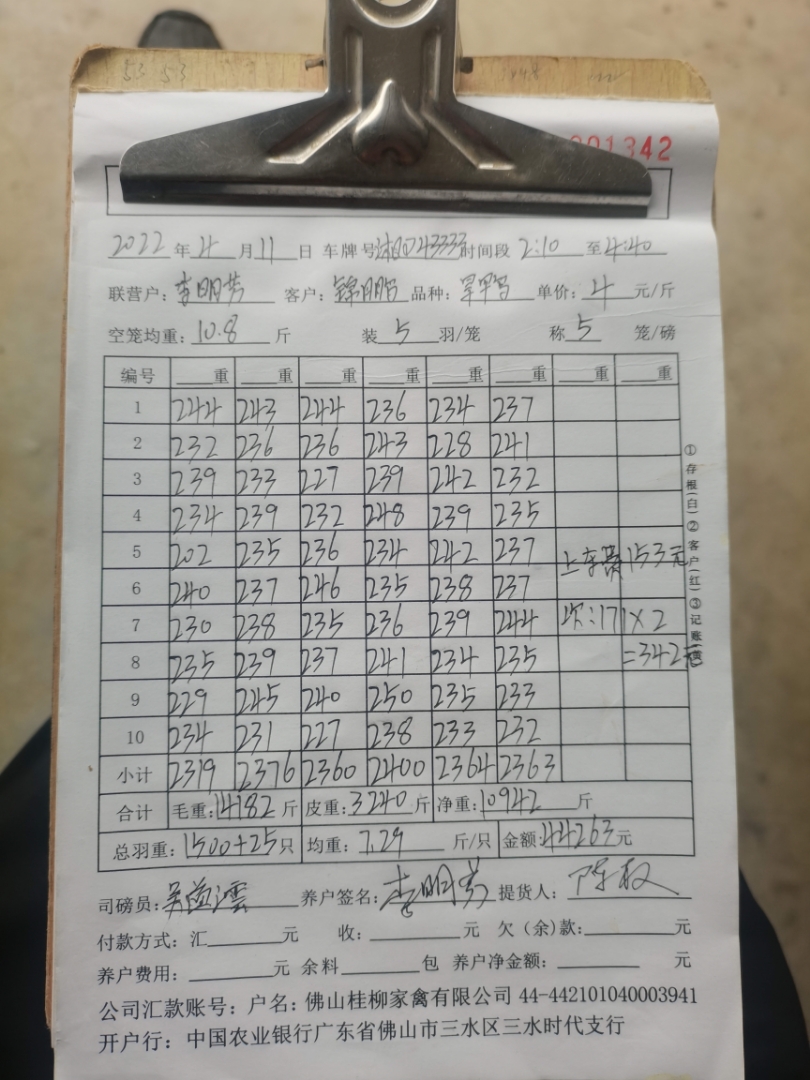 001342
2022年4月11日 车牌号 43333 时间段 2:10 至 4:40
联营户: 李明芳 客户: 品种: 单价: 4 元/斤
空笼均重: 10.8 斤 装 5 羽/笼 称 5 笼/磅
编号 重 重 重 重 重 重 重 重
1 244 243 244 236 234 237
2 232 236 236 243 228 241
3 239 233 227 239 242 232
4 234 239 232 248 239 235
5 202 235 236 234 242 237 上车费153元
6 240 237 246 235 238 237
7 230 238 235 236 239 244 次:171×2
8 235 239 237 241 234 235 =342元
9 229 245 240 250 235 233
10 234 231 227 238 233 232
小计 2319 2376 2360 2400 2364 2363
合计 毛重: 14182 斤 皮重: 3240 斤 净重: 10942 斤
总羽重: 1500+25 只 均重: 7.29 斤/只 金额: 44263 元
司磅员: 养户签名: 李明芳 提货人: 陈权
付款方式: 汇 元 收: 元 欠(余)款: 元
养户费用: 元 余料 包 养户净金额: 元
公司汇款账号: 户名: 佛山桂柳家禽有限公司 44-442101040003941
开户行: 中国农业银行广东省佛山市三水区三水时代支行
①存根(白)②客户(红)③记账(黄)